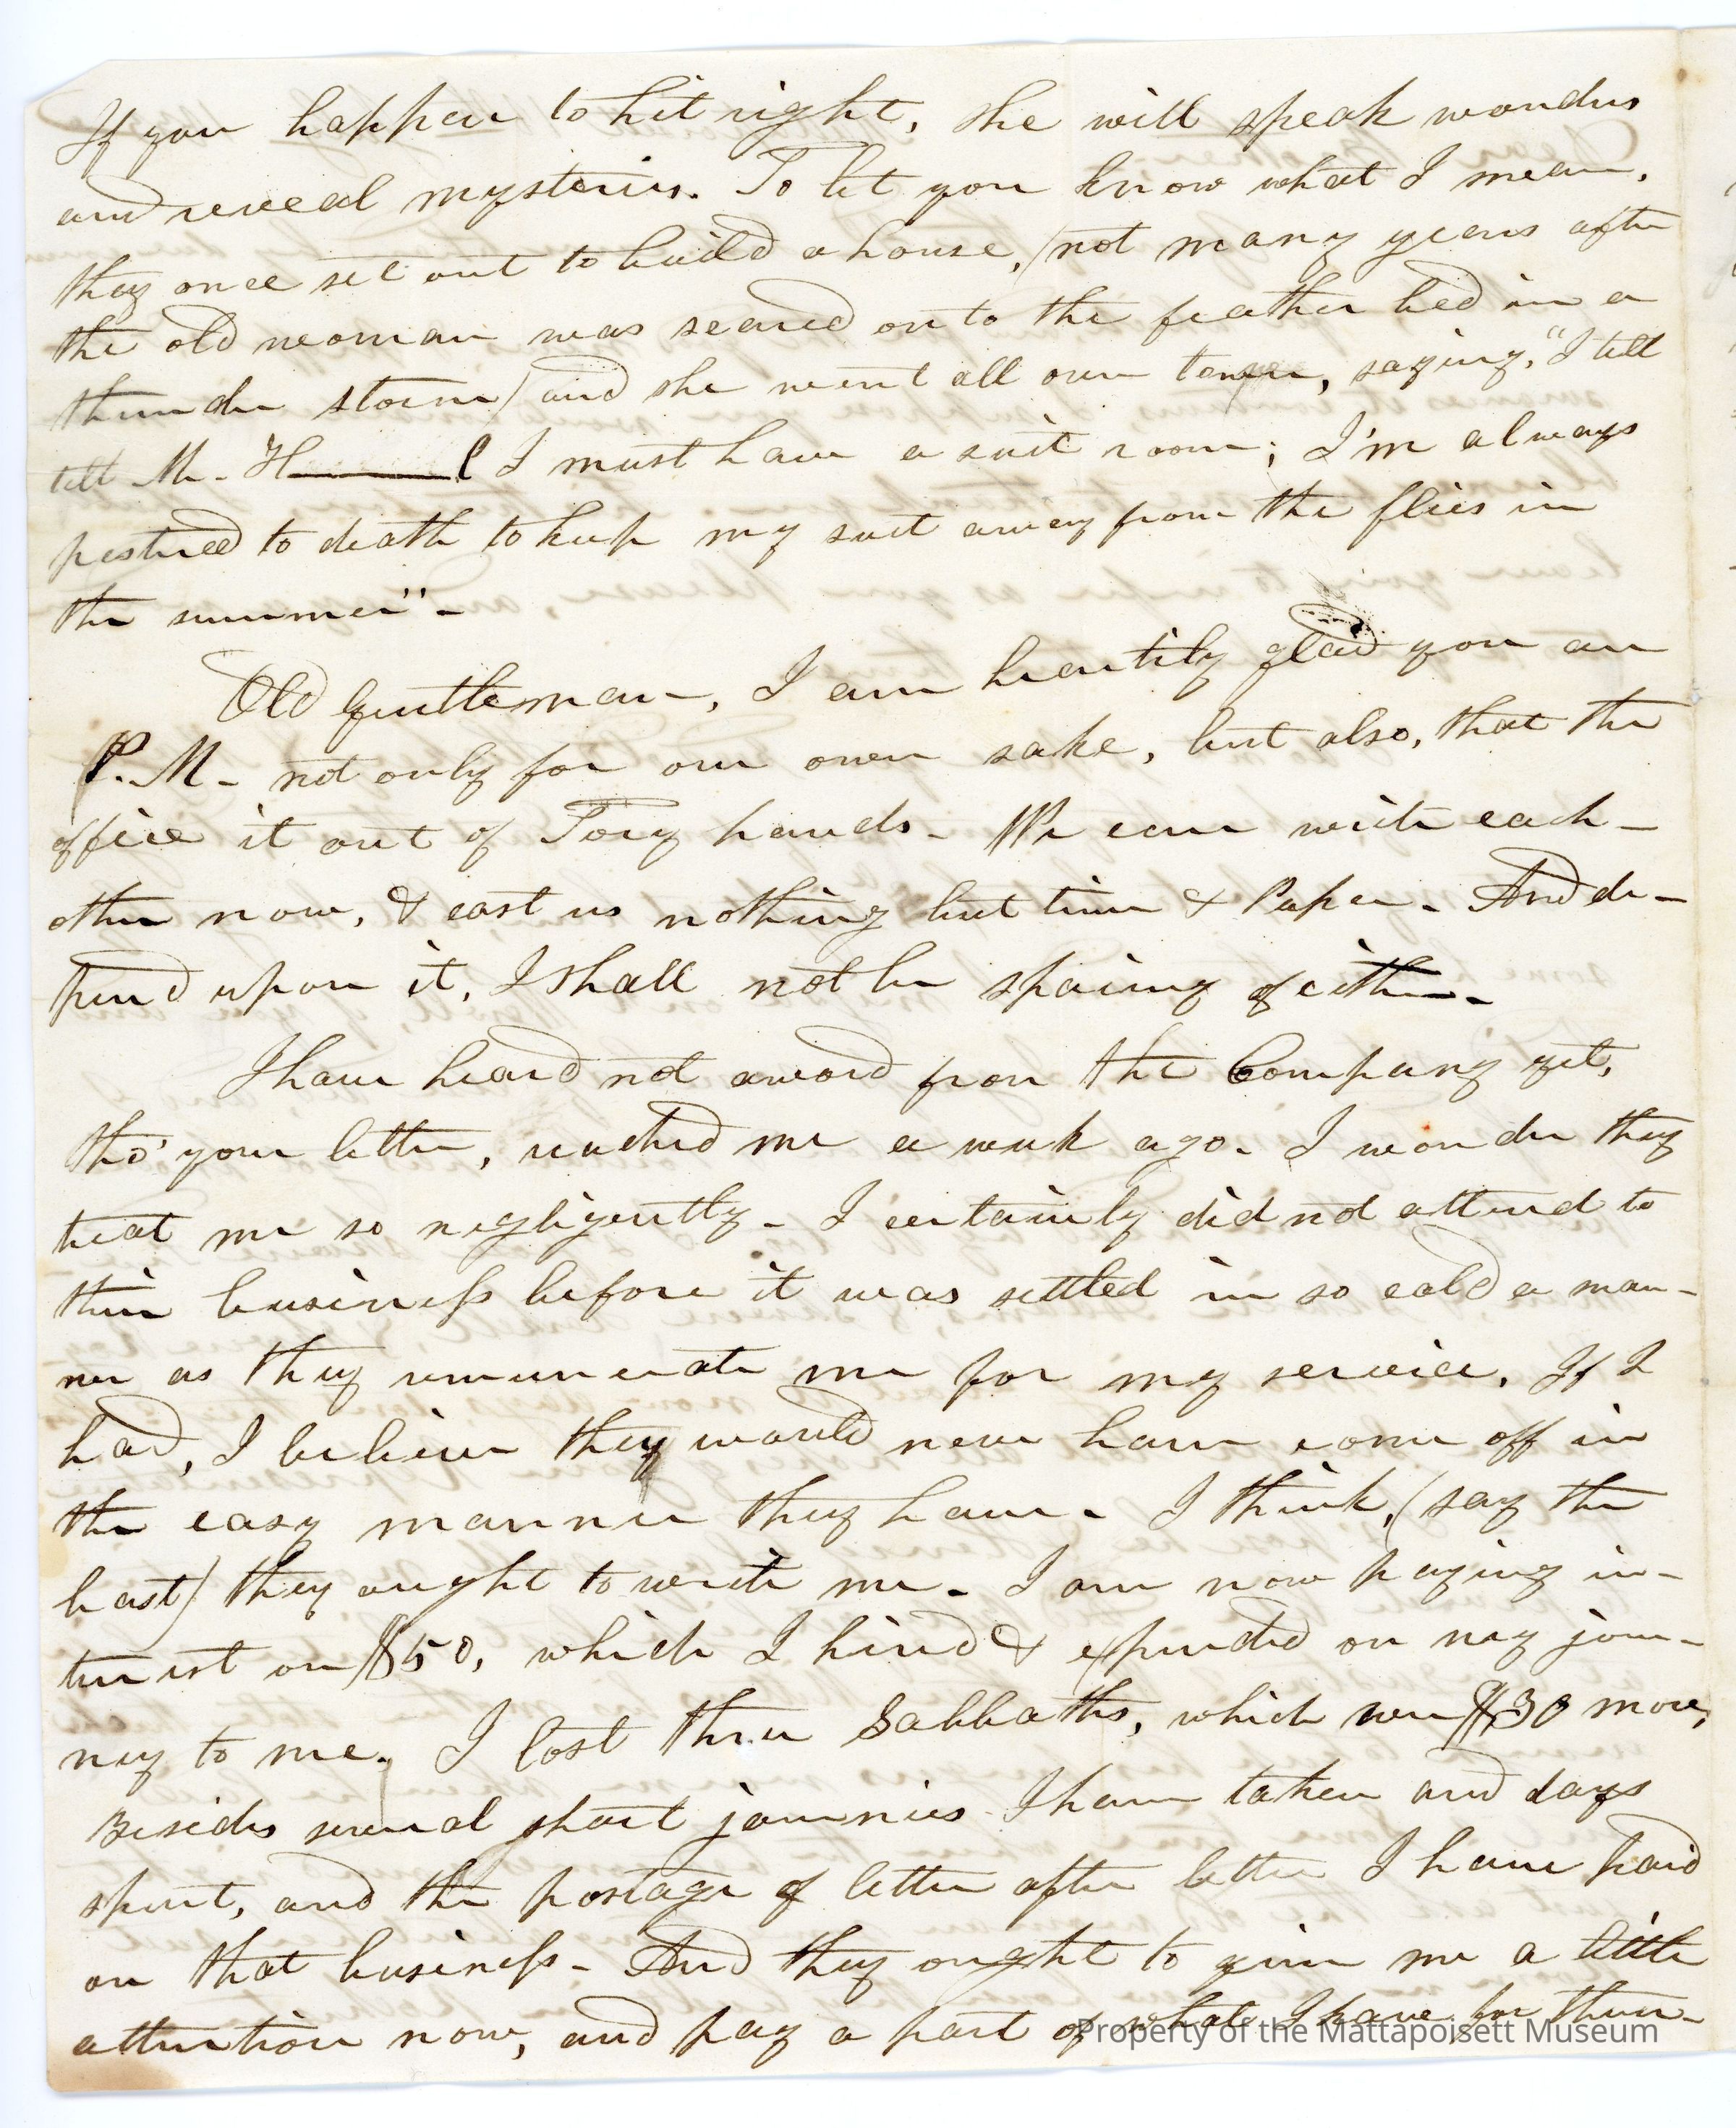 If you happen to hit right, she will speak wondus
and reveal mysteries. To let you know what I mean,
they once set out to build a house, (not many years after
the old woman was scared on to the feather bed in a
thunder storm) and she went all over town, saying, "I tell
tell Mr. H———l I must have a suit room; I'm always
pestured to death to keep my suit away from the flies in
the summer".
Old gentleman, I am heartily glad you are
P.M. not only for our own sake, but also, that the
office it out of Tory hands. We can write each-
other now, & cast us nothing but time & Paper. And de-
pend upon it, I shall not be sparing of either.
I have heard not a word from the Company yet,
tho' your letter, reached me a week ago. I wonder they
treat me so negligently. I certainly did not attend to
their business before it was settled in so cold a man-
ner as they remunerate me for my service. If I
had, I believe they would never have come off in
the easy manner they have. I think, (say the
least) they ought to write me. I am now paying in-
terest on $50, which I hired & expended on my jour-
ney to me. I lost three Sabbaths, which were $30 more,
Besides several short journies I have taken and days
spent, and the postage of letter after letter I have paid
on that business. And they ought to give me a little
attention now, and pay a part of what I have for them.
Property of the Mattapoisett Museum